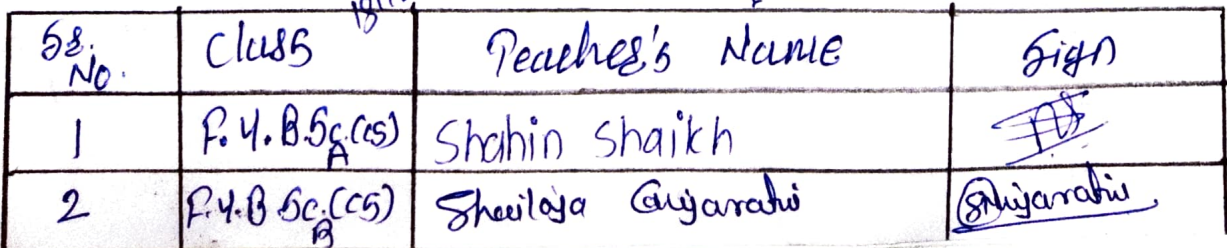 Sr. No. Class Teacher's Name Sign
1 F.Y.B.Sc.(CS) A Shahin Shaikh
2 F.Y.B.Sc.(CS) B Shailaja Gujarathi SGujarathi